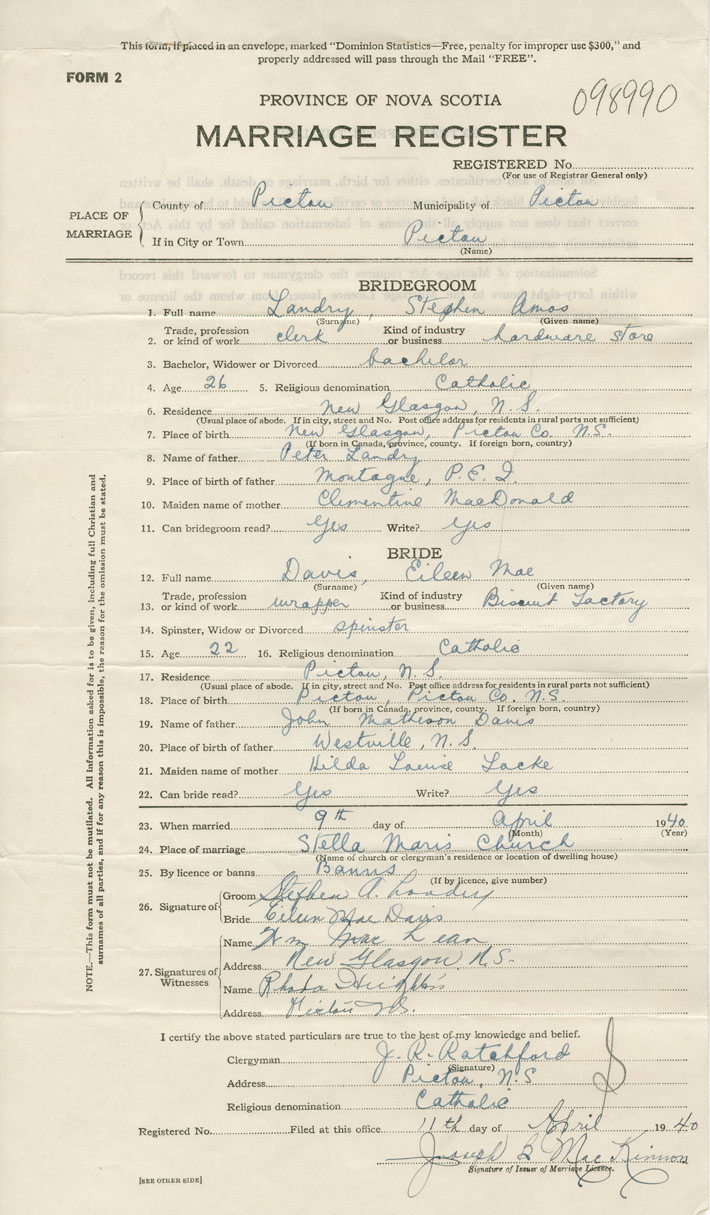 This form, if placed in an envelope, marked "Dominion Statistics—Free, penalty for improper use $300," and
properly addressed will pass through the Mail "FREE".
FORM 2
098990
PROVINCE OF NOVA SCOTIA
MARRIAGE REGISTER
REGISTERED No.
(For use of Registrar General only)
PLACE OF MARRIAGE
County of Pictou Municipality of Pictou
If in City or Town Pictou
(Name)
BRIDEGROOM
1. Full name Landry, Stephen Amos
(Surname) (Given name)
2. Trade, profession or kind of work clerk Kind of industry or business hardware store
3. Bachelor, Widower or Divorced bachelor
4. Age 26 5. Religious denomination Catholic
6. Residence New Glasgow, N.S.
(Usual place of abode. If in city, street and No. Post office address for residents in rural parts not sufficient)
7. Place of birth New Glasgow, Pictou Co. N.S.
(If born in Canada, province, county. If foreign born, country)
8. Name of father Peter Landry
9. Place of birth of father Montague, P.E.I.
10. Maiden name of mother Clementine MacDonald
11. Can bridegroom read? Yes Write? Yes
BRIDE
12. Full name Davis, Eileen Mae
(Surname) (Given name)
13. Trade, profession or kind of work wrapper Kind of industry or business Biscuit Factory
14. Spinster, Widow or Divorced spinster
15. Age 22 16. Religious denomination Catholic
17. Residence Pictou, N.S.
(Usual place of abode. If in city, street and No. Post office address for residents in rural parts not sufficient)
18. Place of birth Pictou, Pictou Co. N.S.
(If born in Canada, province, county. If foreign born, country)
19. Name of father John Matheson Davis
20. Place of birth of father Westville, N.S.
21. Maiden name of mother Hilda Louise Locke
22. Can bride read? Yes Write? Yes
23. When married 9th day of April 1940
(Month) (Year)
24. Place of marriage Stella Maris Church
(Name of church or clergyman's residence or location of dwelling house)
25. By licence or banns Banns
(If by licence, give number)
26. Signature of
Groom Stephen A. Landry
Bride Eileen Mae Davis
27. Signatures of Witnesses
Name Wm MacLean
Address New Glasgow N.S.
Name Rhoda
Address Pictou N.S.
I certify the above stated particulars are true to the best of my knowledge and belief.
Clergyman J. R. Ratchford
(Signature)
Address Pictou, N.S
Religious denomination Catholic
Registered No. Filed at this office 11th day of April 1940
Joseph MacKinnon
Signature of Issuer of Marriage Licence.
[SEE OTHER SIDE]
NOTE.—This form must not be mutilated. All information asked for is to be given, including full Christian and
surnames of all parties, and if for any reason this is impossible, the reason for the omission must be stated.